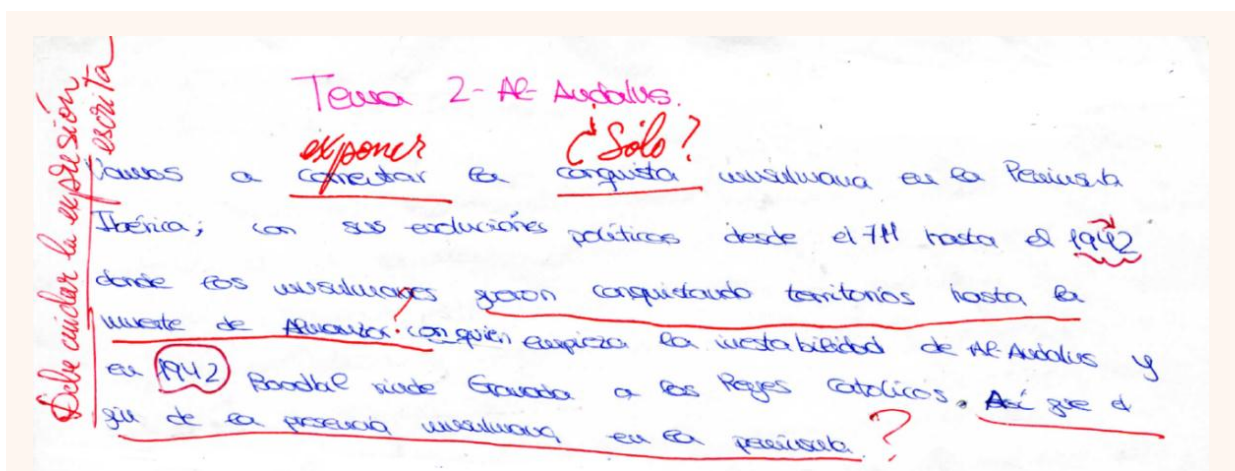 Debe cuidar la expresión
escrita
Tema 2- Al-Andalus.
exponer ¿Sólo?
Vamos a comentar la conquista musulmana en la Península
Ibérica; con sus evoluciones políticas desde el 711 hasta el 1942
donde los musulmanes fueron conquistando territorios hasta la
muerte de Almanzor. ? con quien empieza la inestabilidad de Al-Andalus y
en 1942 Boadbil rinde Granada a los Reyes Catolicos. Así fue el
fin de la presencia musulmana en la península. ?